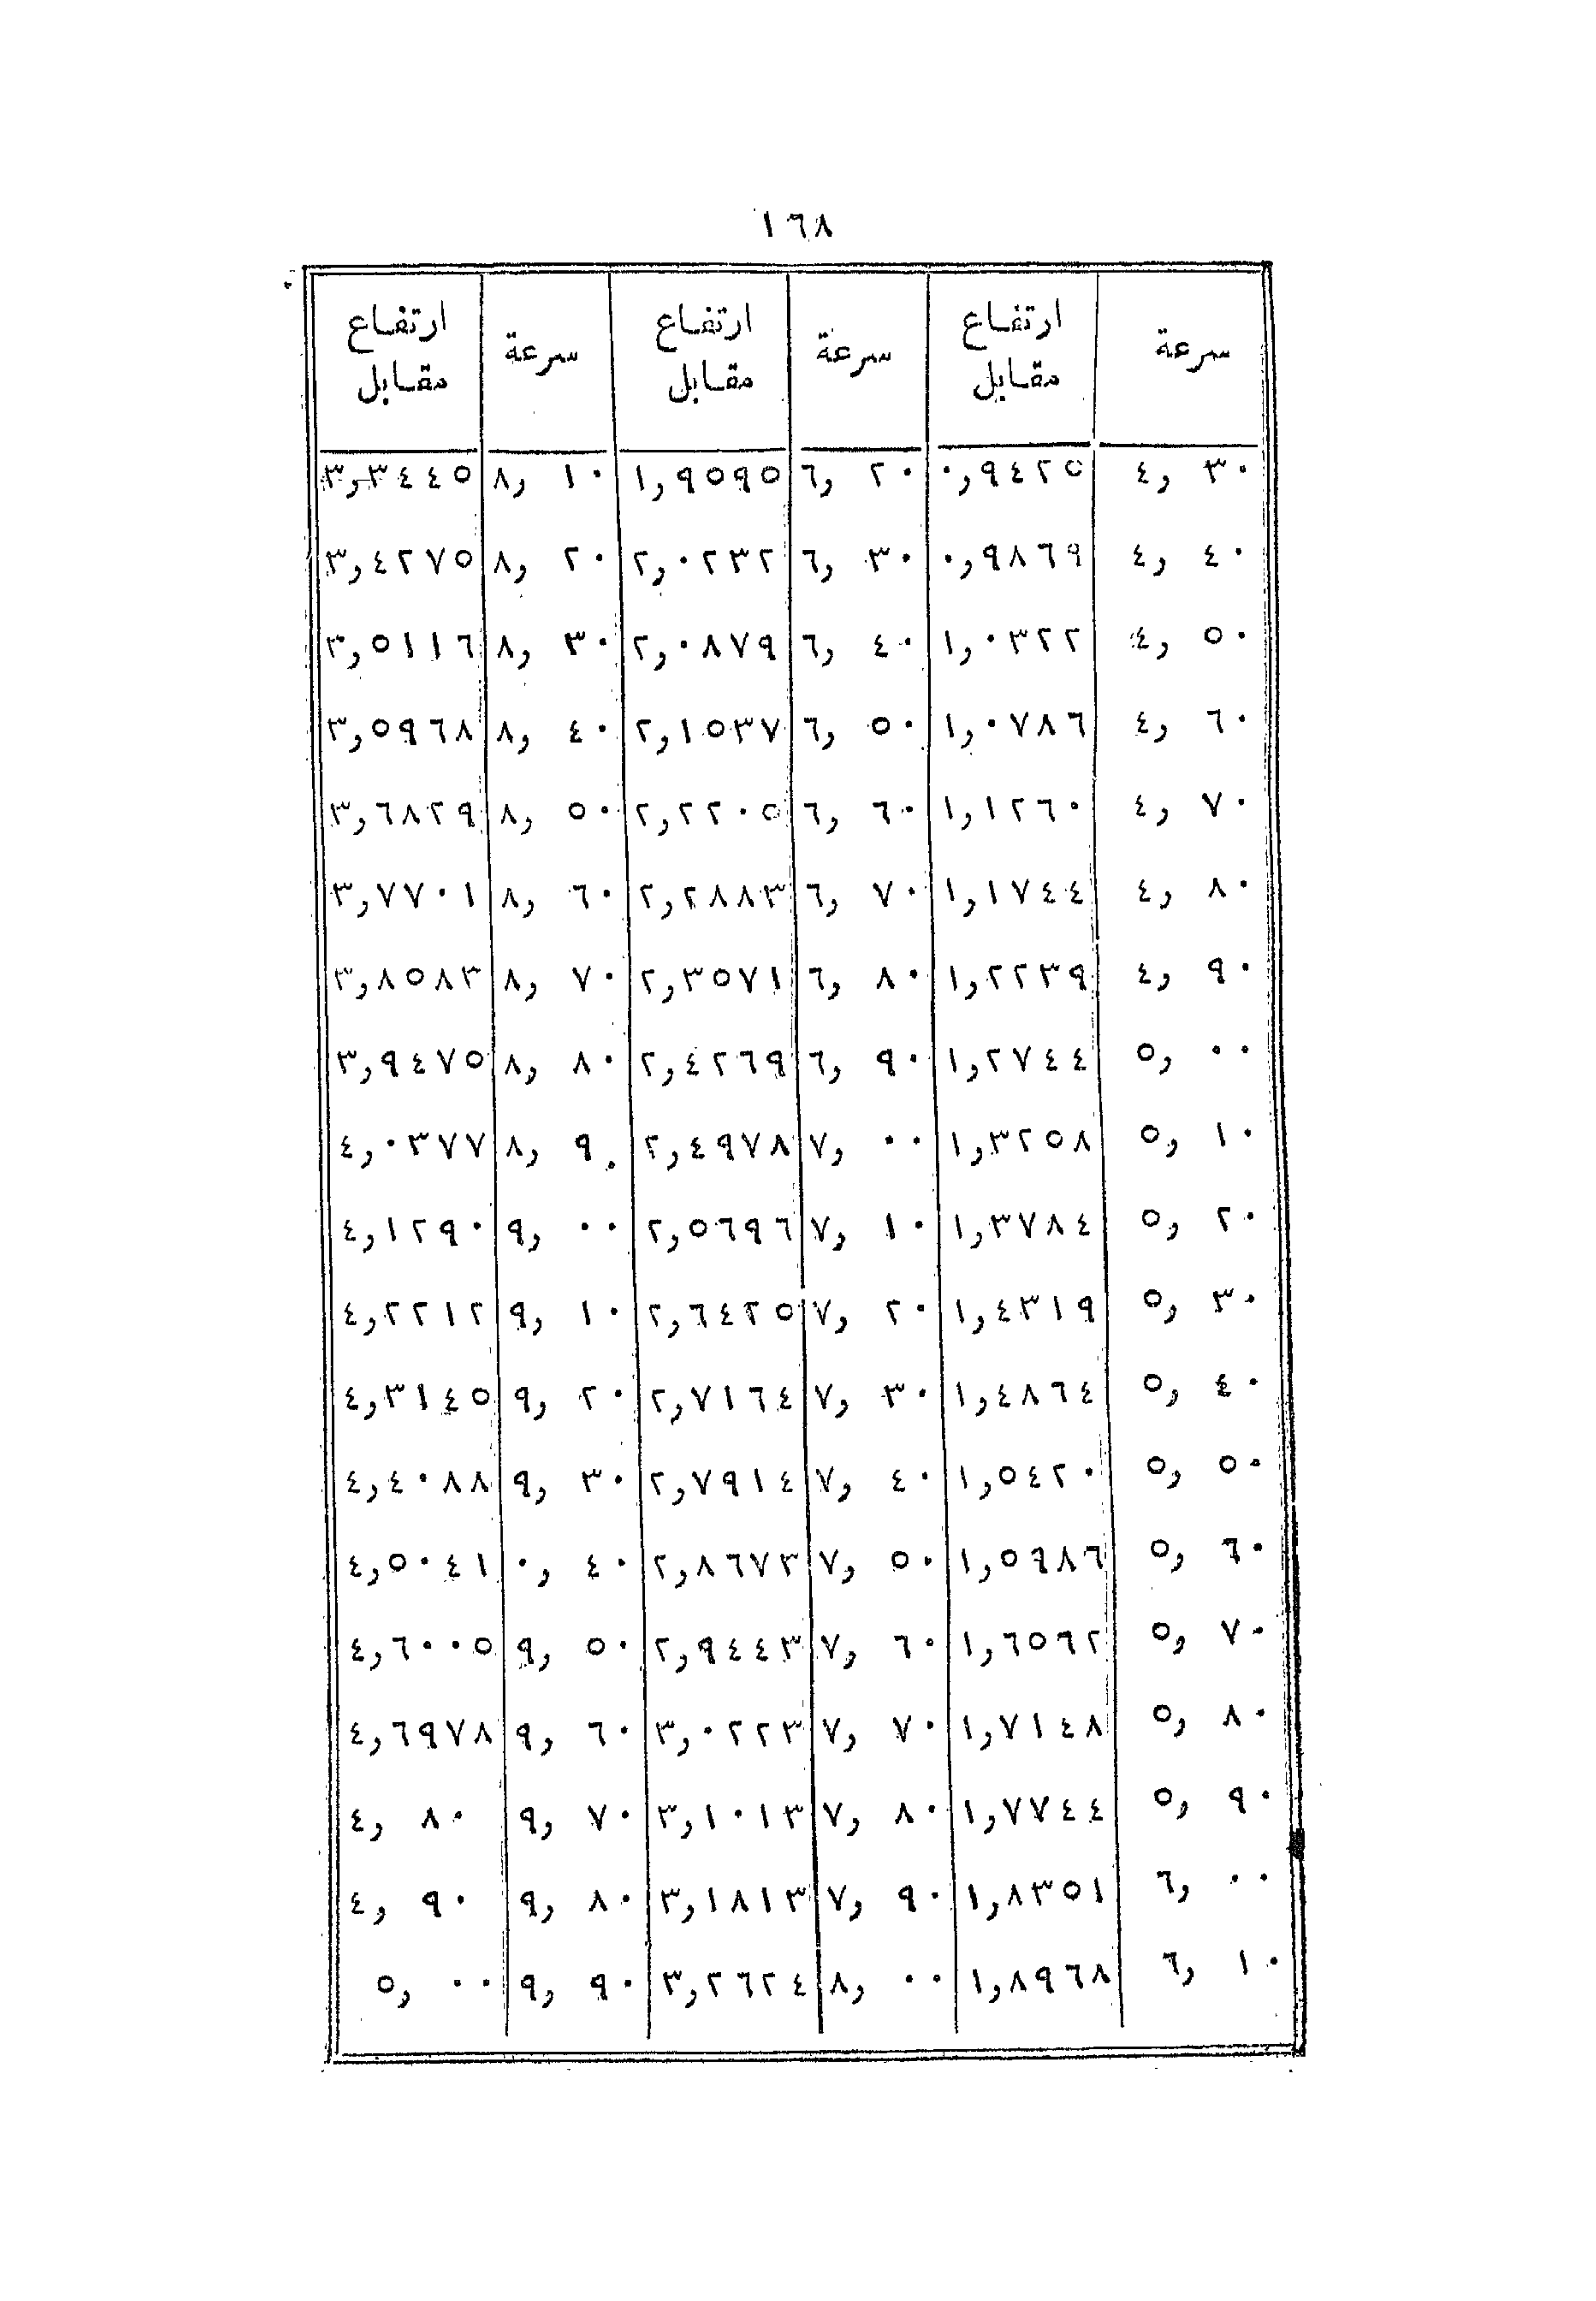 ١٦٨
سرعة | ارتفاع مقابل | سرعة | ارتفاع مقابل | سرعة | ارتفاع مقابل
٤,٣٠ | ٠,٩٤٢٥ | ٦,٢٠ | ١,٩٥٩٥ | ٨,١٠ | ٣,٣٤٤٥
٤,٤٠ | ٠,٩٨٦٩ | ٦,٣٠ | ٢,٠٢٣٢ | ٨,٢٠ | ٣,٤٢٧٥
٤,٥٠ | ١,٠٣٢٢ | ٦,٤٠ | ٢,٠٨٧٩ | ٨,٣٠ | ٣,٥١١٦
٤,٦٠ | ١,٠٧٨٦ | ٦,٥٠ | ٢,١٥٣٧ | ٨,٤٠ | ٣,٥٩٦٨
٤,٧٠ | ١,١٢٦٠ | ٦,٦٠ | ٢,٢٢٠٥ | ٨,٥٠ | ٣,٦٨٢٩
٤,٨٠ | ١,١٧٤٤ | ٦,٧٠ | ٢,٢٨٨٣ | ٨,٦٠ | ٣,٧٧٠١
٤,٩٠ | ١,٢٢٣٩ | ٦,٨٠ | ٢,٣٥٧١ | ٨,٧٠ | ٣,٨٥٨٣
٥,٠٠ | ١,٢٧٤٤ | ٦,٩٠ | ٢,٤٢٦٩ | ٨,٨٠ | ٣,٩٤٧٥
٥,١٠ | ١,٣٢٥٨ | ٧,٠٠ | ٢,٤٩٧٨ | ٨,٩٠ | ٤,٠٣٧٧
٥,٢٠ | ١,٣٧٨٤ | ٧,١٠ | ٢,٥٦٩٦ | ٩,٠٠ | ٤,١٢٩٠
٥,٣٠ | ١,٤٣١٩ | ٧,٢٠ | ٢,٦٤٢٥ | ٩,١٠ | ٤,٢٢١٢
٥,٤٠ | ١,٤٨٦٤ | ٧,٣٠ | ٢,٧١٦٤ | ٩,٢٠ | ٤,٣١٤٥
٥,٥٠ | ١,٥٤٢٠ | ٧,٤٠ | ٢,٧٩١٤ | ٩,٣٠ | ٤,٤٠٨٨
٥,٦٠ | ١,٥٩٨٦ | ٧,٥٠ | ٢,٨٦٧٣ | ٠,٤٠ | ٤,٥٠٤١
٥,٧٠ | ١,٦٥٦٢ | ٧,٦٠ | ٢,٩٤٤٣ | ٩,٥٠ | ٤,٦٠٠٥
٥,٨٠ | ١,٧١٤٨ | ٧,٧٠ | ٣,٠٢٢٣ | ٩,٦٠ | ٤,٦٩٧٨
٥,٩٠ | ١,٧٧٤٤ | ٧,٨٠ | ٣,١٠١٣ | ٩,٧٠ | ٤,٨٠
٦,٠٠ | ١,٨٣٥١ | ٧,٩٠ | ٣,١٨١٣ | ٩,٨٠ | ٤,٩٠
٦,١٠ | ١,٨٩٦٨ | ٨,٠٠ | ٣,٢٦٢٤ | ٩,٩٠ | ٥,٠٠